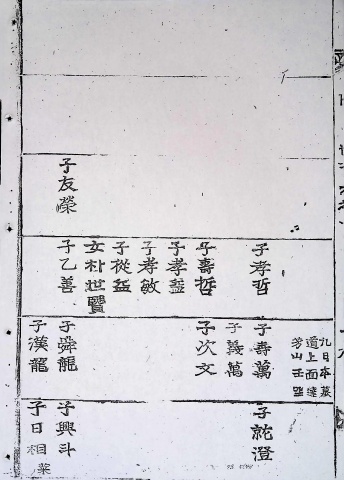 子友榮
子孝哲
子壽哲
子孝益
子孝敏
子從益
女朴世賢
子乙善
九日本墓
道上面
芳山壬
子壽萬
子義萬
子次文
子舜龍
子漢龍
子就澄
子興斗
子日相